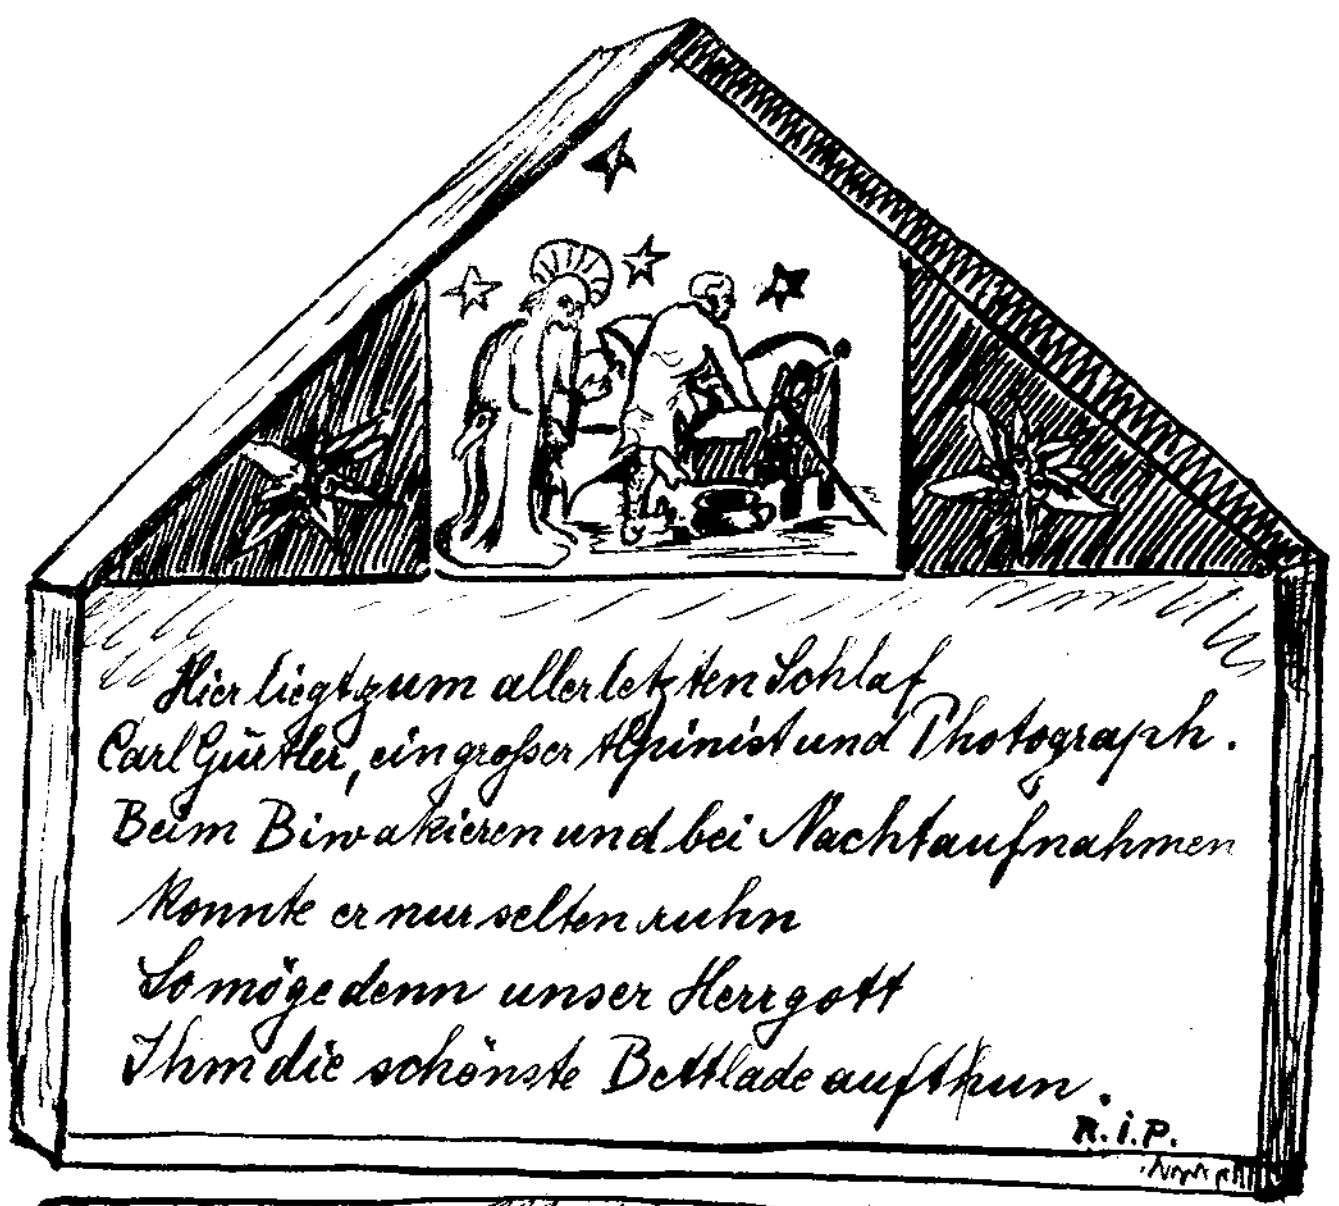 Hier liegt zum allerletzten Schlaf
Carl Gürtler, ein großer Alpinist und Photograph.
Beim Biwakieren und bei Nachtaufnahmen
konnte er nur selten ruhn
So möge denn unser Herrgott
Ihm die schönste Bettlade aufthun.
R.i.P.